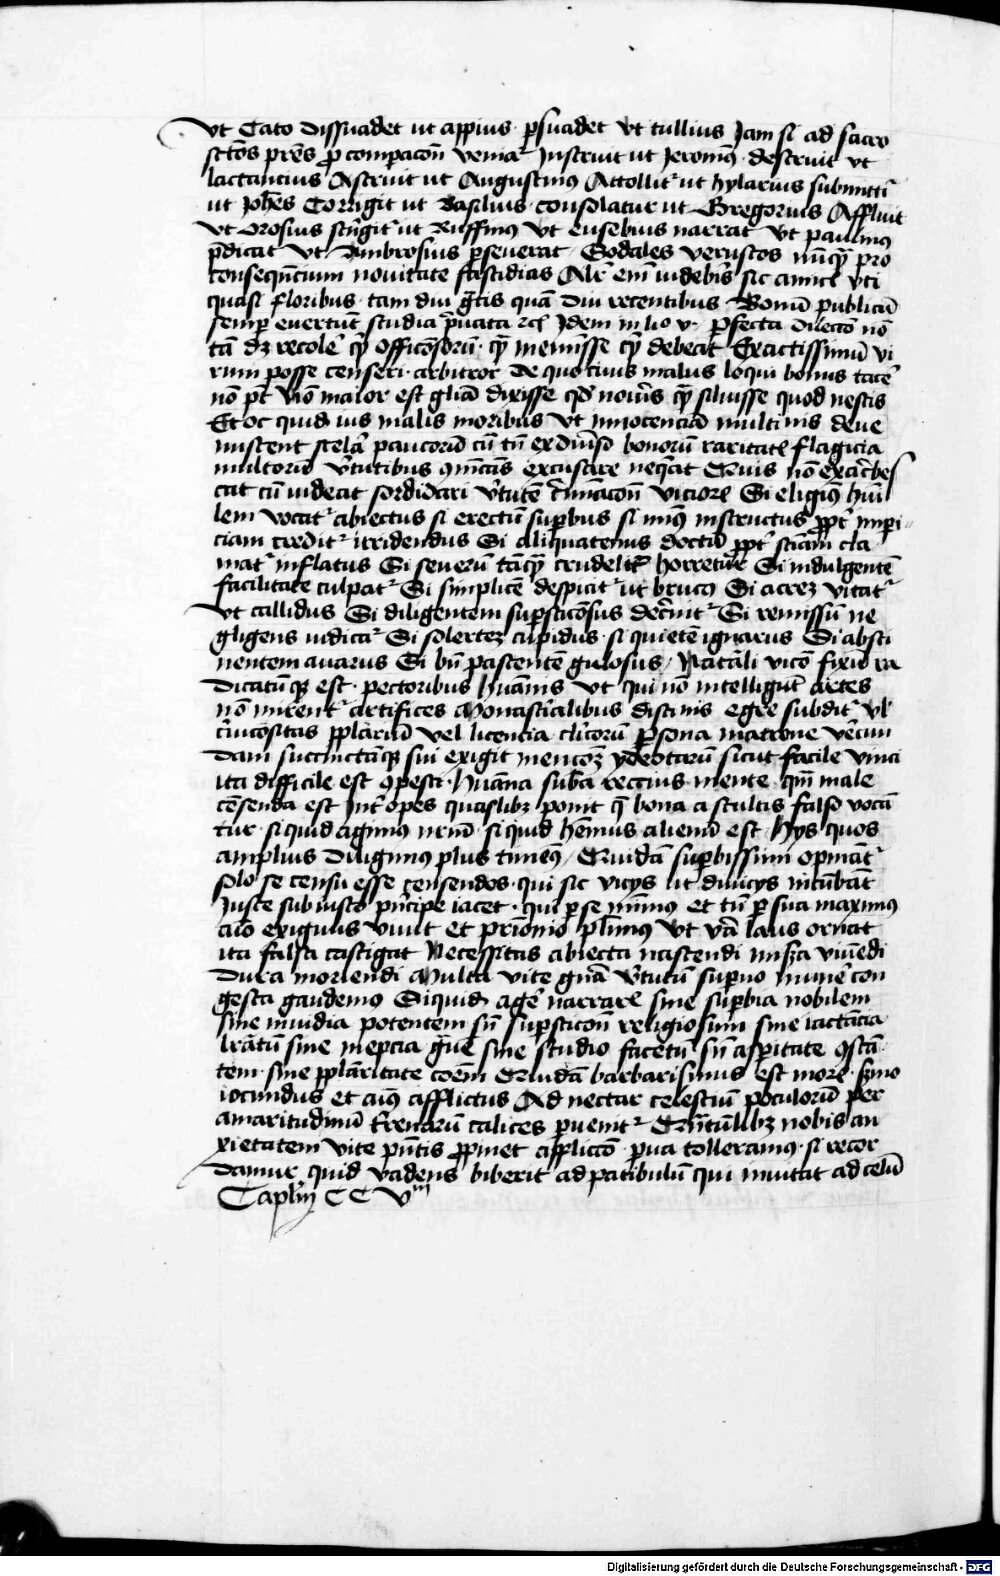 vt Cato dissuadet ut appius psuadet vt tullius Jam si ad sacro
sctōs prēs p compacōn veniaꝛ Instruit ut Jeronimꝰ destruit vt
lactancius Astruit ut Augustinꝰ Attollitˀ ut hylarius submittiˀ
ut Johēs Corrigit ut Basilius consolatur ut Gregorius Affluit
vt Orosius stringitˀ ut Ruffinus vt eusebius narrat vt paulinus
pdicat vt Ambrosius pseuerat Sodales vetustos nūq̄ pro
consequēcium nouitate fastidias Alr̄ em̄ videbis sic amicis vti
quasi floribus tam diu gratis quā diu recentibus Bonū publicū
semp euertūt studia pͥuata rcͦ Idem in lio v. pfecta dilectō nō
tā dꝫ recole qͥ officiosorū qͣ meminisse qͥ debeat Exactissimū vi
rum posse censeri arbitror De quo ciuis malus loqui bonus tace
nō pt Nō maior est glīa dixisse qd noueris qͣ siluisse quod nescis
Et oc quid ius malis moribus vt innocenciā multi nis deue
niscent scela paucorū cū tn ex diuso bonorū raritatē flagicia
multorū vtutibus ꝯmunicās excusare neqͣat Quis nō exacerbes
cat cū videat sordidari vtutē criminacōn vicioꝛ Si eligimꝰ humi
lem vocatˀ abiectus si erectū supbus si minꝰ instructus ppt impi
ciam creditˀ irridendus Si aliquatenus doctū ppt sciam cla
matˀ inflatus Si seuerū tāqͣ crudelitˀ horretur Si indulgentē
facilitate culpatˀ Si simplicē despicitˀ ut brutꝰ Si acreꝫ vitatˀ
vt callidus Si diligentem supsticōsus decerniturˀ Si remissū ne
gligens iudicaˀ Si solerteꝫ cupidus si quietē ignarus Si absti
nentem auarus Si bn̄ pascentē gulosus Natāli vicō fixū ra
dicatūqꝫ est pectoribus huānis vt qui nō intelligūt artes
nō mirentˀ artifices Monasticalibus discinis egre subditˀ vl
ciuositas pplariū vel licencia clicorū Psona matrone vecun
dam succinctāqꝫ sui exigit mencōꝫ ydeotarū sicut facile vinci
ita difficile est ꝯpesci Huāna subā rectius mente qm̄ male
cēsenda est Int opes quaslibꝫ ponit q̄ bona a stultis falso vocā
tur si quid agimus nrm̄ si quid hēmus alienū est Hys quos
amplius diligimꝰ plus timeꝰ Quidā supbissimi opinātˀ
solo se censu esse censendos qui sic vicijs ut diuicijs incūbāt
Juste sub iusto pͥncipe iacet qui p se minimꝰ et tn p sua maximus
alō exiguus viuit et prīmonio plurimus vt vā laus ornat
ita falsa castigat Necessitas abiecta nascendi misera viuēdi
dura moriendi Multa vite gn̄a vtutū supno munē con
gesta gaudemꝰ Siquid agē narrare sine supbia nobilem
sine inuidia potentem sn̄ supsticōn religiosum sine iactācia
lratū sine inepcia gͣuē sine studio facetū sn̄ aspitate ꝯstā
tem sine pplaritate coēm Quidā barbarisimus est moꝛ sermo
iocundus et aīus afflictus Ad nectar celestiū poculorū per
amaritudinū trenarū calices puenitˀ Quātūlibꝫ nobis an
xietatem vite pn̄tis ppinet afflictō pua tolleramus si recor
damur quid vadens biberit ad patibulū qui inuitat ad celū
Caplm̄ C C V<sup>m</sup>
Digitalisierung gefördert durch die Deutsche Forschungsgemeinschaft - DFG